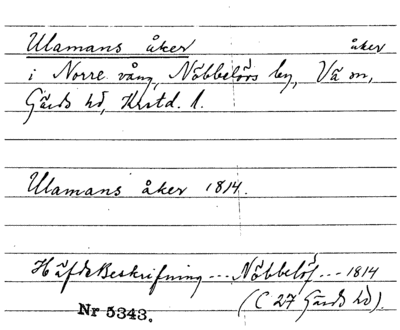 Ulamans åker åker
i Norre vång, Nöbbelövs by, Vä sn,
Gärds hd, Krstd. l.
Ulamans åker 1814.
Häfdebeskrifning --- Nöbbelöf --- 1814
(C 27 Gärds hd).
Nr 5343.